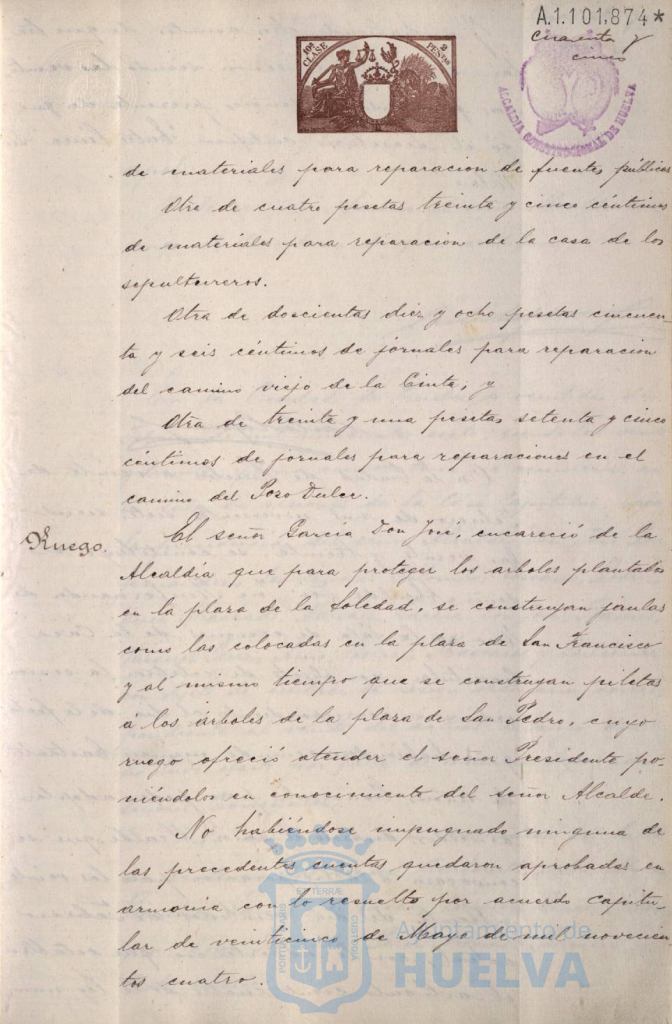 A.1.101,874*
cuarenta y
cinco
10ª CLASE
2 PESETAS
ALCALDIA CONSTITUCIONAL DE HUELVA
de materiales para reparacion de fuentes públicas
Otra de cuatro pesetas treinta y cinco céntimos
de materiales para reparacion de la casa de los
sepultureros.
Otra de doscientas diez y ocho pesetas cincuen
ta y seis céntimos de jornales para reparacion
del camino viejo de la Cinta, y
Otra de treinta y una pesetas setenta y cinco
céntimos de jornales para reparaciones en el
camino del Pozo Dulce.
Ruego.
El señor García Don José, encareció de la
Alcaldía que para proteger los arboles plantados
en la plaza de la Soledad, se construyan jaulas
como las colocadas en la plaza de San Francisco
y al mismo tiempo que se construyan piletas
á los árboles de la plaza de San Pedro, cuyo
ruego ofreció atender el señor Presidente po-
niéndolos en conocimiento del señor Alcalde.
No habiéndose impugnado ninguna de
las precedentes cuentas quedaron aprobadas en
armonía con lo resuelto por acuerdo capitu-
lar de veinticinco de Mayo de mil novecien
tos cuatro.
PORTUS MARIS ET TERRAE CUSTODIA
Ayuntamiento de
HUELVA